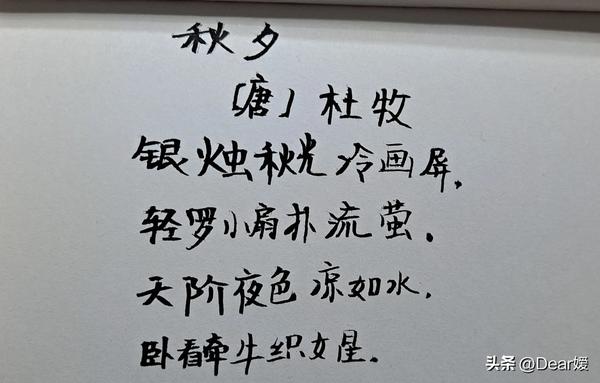 秋夕
[唐]杜牧
银烛秋光冷画屏,
轻罗小扇扑流萤.
天阶夜色凉如水,
卧看牵牛织女星.
头条 @Dear嫒